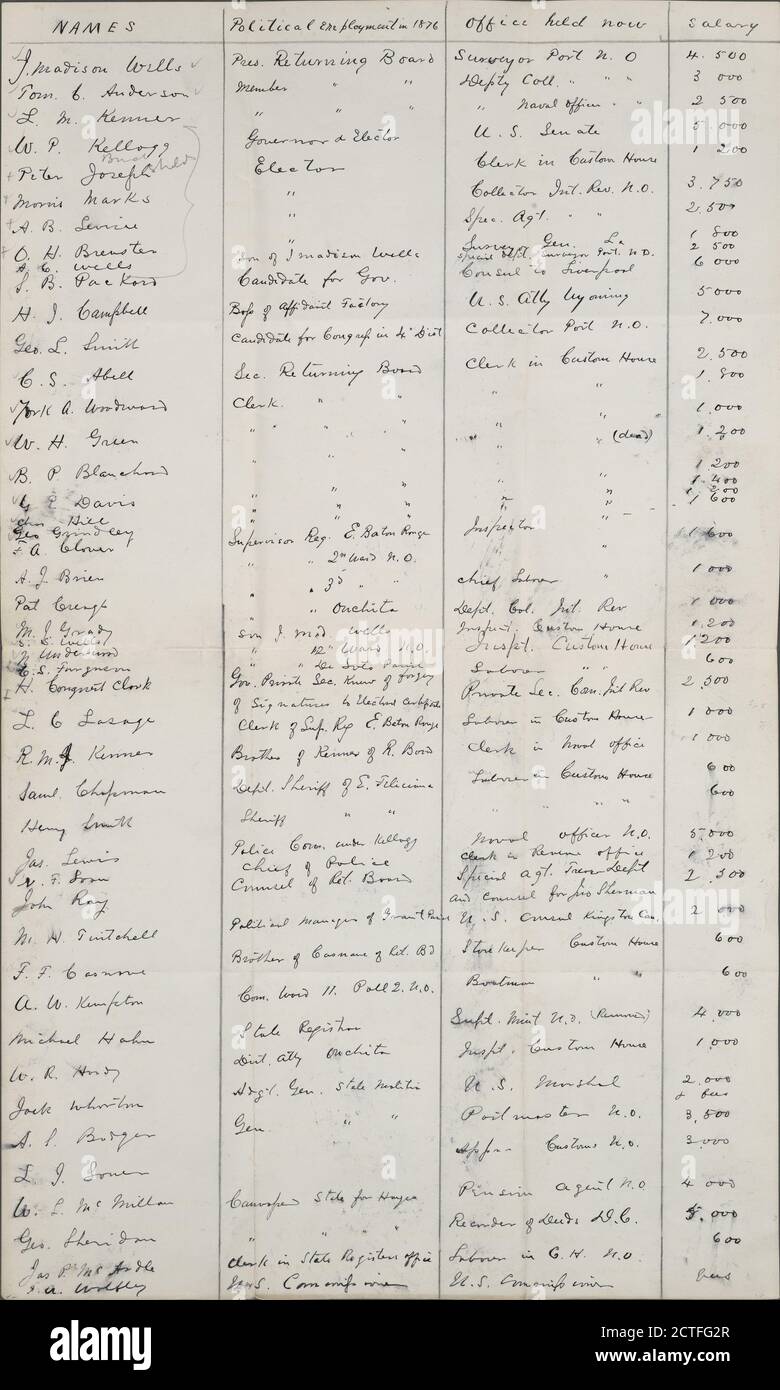 NAMES Political Employment in 1876 Office held now Salary
J. Madison Wells Pres. Returning Board Surveyor Port N. O 4.500
Tom. C. Anderson Member " " Depty Coll. " " " 3 000
L. M. Kenner " " " " Naval office " " 2 500
W. P. Kellogg Governor & Elector U. S. Senate 5.000
Peter Joseph Elector Clerk in Custom House 1 200
Morris Marks " Collector Int. Rev. N.O. 3.750
A. B. Levine " Spec. Agt. " " 2.500
O. H. Brewster " Surveyor Gen. La 1 800
A. C. Wells Son of J madison Wells Special Dept. Surveyor Port. N.O. 2 500
S. B. Packard Candidate for Gov. Consul to Liverpool 6 000
H. J. Campbell Boss of Affidavit Factory U. S. Atty Wyoming 5000
Geo. L. Smith Candidate for Congress in 4" Dist Collector Port N.O. 7.000
C. S. Abell Sec. Returning Board Clerk in Custom House 2.500
York A. Woodward Clerk. " " " 1.800
W. H. Green " " " " " " 1.000
B. P. Blanchard " " " " (dead) 1.200
G. P. Davis " " " " 1.200
Chas. Hill " " " " 1.400
Geo Grindley " " " " 1.200
F. A. Clover Supervisor Reg. E. Baton Rouge Inspector " 1 600
A. J. Brien " " 2nd Ward N.O. " 1 600
Pat Creagh " " 3d " " Chief Laborer " 1 000
M. J. Grady " " Ouchita Dept. Col. Int. Rev 1 000
S. S. Wells son J. Mad. Wells Inspect. Custom House 1.200
N. Underwood " " 12" Ward N.O. Inspt. Custom House 1200
C. S. Ferguson " " De Soto Parish Laborer " " 600
H. Conquest Clark Gov. Private Sec. Knew of forgery Private Sec. Com. Int Rev 2.500
of Signatures to Electoral certificate
L. C Lasage Clerk of Sup. Reg E. Baton Rouge Laborer in Custom House 1 000
R. M. J. Kenner Brother of Kenner of R. Board Clerk in Naval office 1 000
Saml. Chapman Dept. Sheriff of E. Feliciana Laborer in Custom House 600
Henry Smith Sheriff " " " " " 600
Jas. Lewis Police Com. under Kellogg Naval officer N.O. 5.000
F. Loan Chief of Police Clerk in Revenue office 1 200
John Ray Counsel of Ret. Board Special Agt Treas Dept 2.500
and counsel for Jno Sherman
M. H. Twitchell Political Manager of Grant Parish U. S. Consul Kingston Can. 2 000
F. F. Casnave Brother of Casnave of Ret. Bd Store Keeper Custom House 600
A. W. Kempton Com. Ward 11. Poll 2. N.O. Boatman " " 600
Michael Hahn State Registrar Supt. Mint N.O. (Removed) 4.000
W. R. Hardy Dist. Atty Ouchita Inspt. Custom House 1,000
Jack Wharton Adgt. Gen. State Militia U. S. Marshal 2.000 & fees
A. S. Badger Gen. " " Postmaster N.O. 3,500
L. J. Souer Custom N.O. 3.000
W. L. Mc Millan Canvassed State for Hayes Pension Agent N.O 4 000
Geo. Sheridan " " " " Recorder of Deeds D.C. 5.000
Jas P. Mc Ardle Clerk in State Registers office Laborer in C. H. N.O. 600
U.S. Commissioner U.S. Commissioner fees
alamy
Image ID: 2CTFG2R
www.alamy.com